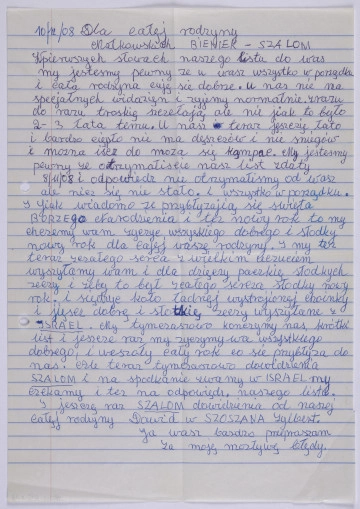 10/XI/08 Dla całej rodziny
Małkowskich BIENIEK - SZALOM
W pierwszych słowach naszego listu do was
my jestesmy pewny ze u wasz wszystko w porządku
i cała rodzina czują się dobrze. u nas nie ma
specjalnych widarzyn i zyjemy normalnie. vrazu
do razu troskię szczelają ale nie jak to było
2-3 lata temu. U nasz teraz jeszcze lato
i bardzo ciepło nie ma deszczów i nie śniegów
i mozna isc do moża się kąmpac. My jestesmy
pewny ze otrzymaliscie nasz list z daty
8/11/08 i odpowiedz nie otrzymalismy od wasz
ale niesz się nu stało. i wszystko w porządku.
I jak wiadomo ze przyblizają się swięta
BORZEGO Narodzenia i tez nowy rok to my
chcemy wam zyczyc wszyskiego dobrego i słodky
nowy rok dla całej waszej rodziny. I my tez
teraz zcałego serca z wielkim uczuciem
wyszłamy wam i dla dzięcy paczkie słodkych
rzeczy i zeby to był zcałego serca słodky nowy
rok. i siądzcie koło ładnej wystrojonej choinky
i jusce dobre i słotkie rzeczy wyszłane z
ISRAEL. My tymczasowo konczymy nasz krótki
list i jeszcze raz my zyczymy wa wszystkiego
dobrego i weszoły cały rok co się przyblyza do
nas. Ale teraz tymczasowo dowidzenia
SZALOM i na spotkanie zwamy w ISRAEL my
czekamy i tez na odpowiedz naszego listu.
I jeszcze raz SZALOM dowidzenia od naszej
całej rodziny Dawid w SZOSZANA Sylbert.
Ja wasz bardzo przepraszam
Za moje mozlywe błędy.